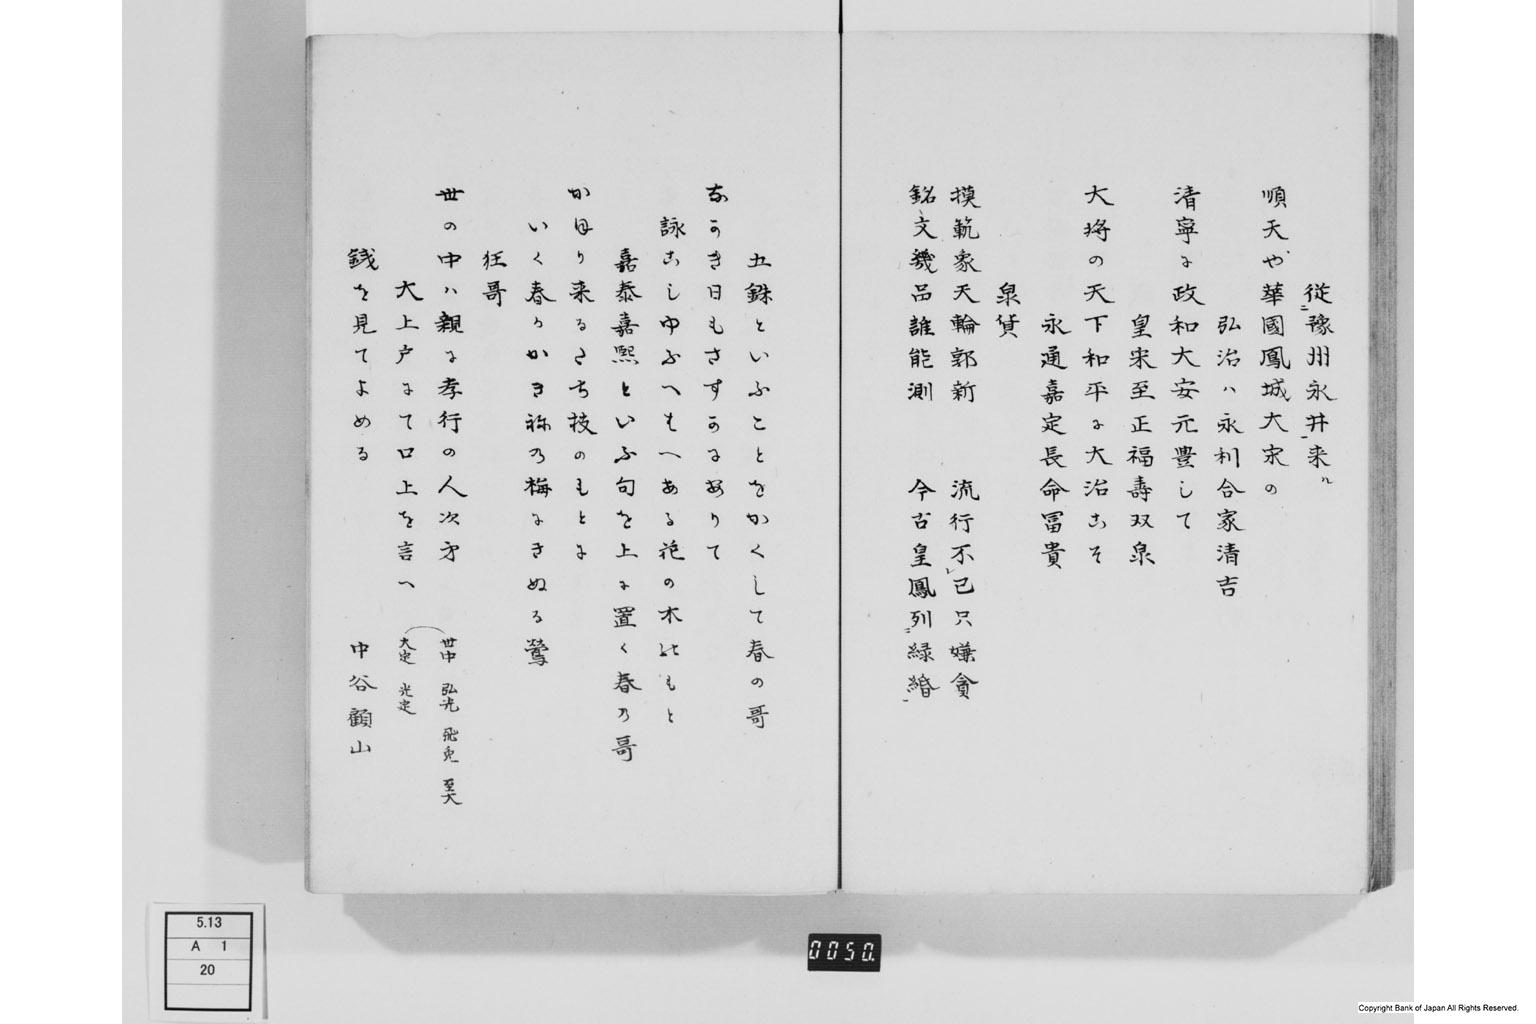 従豫州永井来ル
順天や華國鳳城大宋の
弘治ハ永利合家清吉
清寧に政和大安元豊して
皇宋至正福壽双泉
大将の天下和平に大治こそ
永通嘉定長命冨貴
泉貨
摸範象天輪郭新　流行不レ已只嫌貪
銘文幾品誰能測　今古皇鳳列緑緡
五銖といふことをかくして春の哥
なかき日もさすかにありて
詠こし中ふへもへある花の木のもと
嘉泰嘉熙といふ句を上に置く春の哥
かほり来るたち枝のもとに
いく春かかき祢の梅にきぬる鶯
狂哥
世の中ハ親に孝行の人次才
世中　弘光　飛兎　至大
大上戸にて口上を言へ
大定　光定
銭を見てよめる　中谷顧山
5.13
A 1
20
0050.
Copyright Bank of Japan All Rights Reserved.